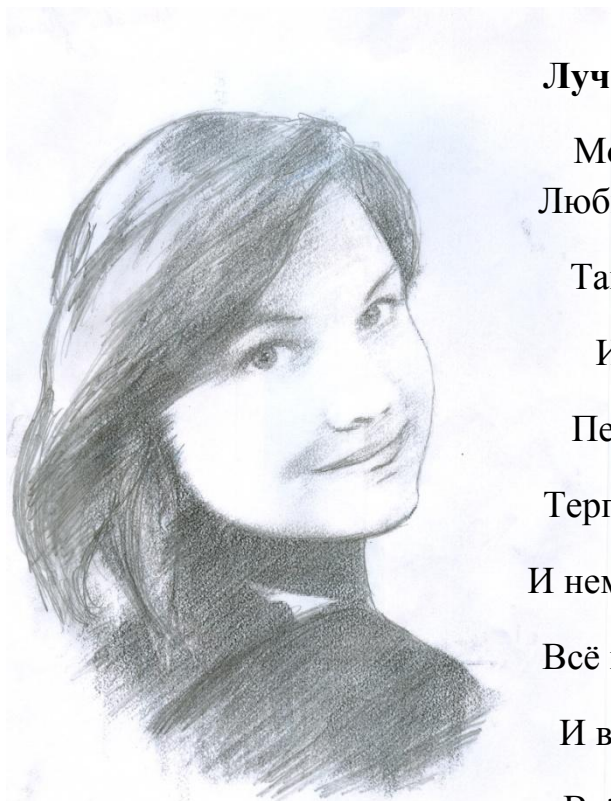 Луч
Мо
Люб
Та
И
Пе
Терп
И нем
Всё
И в